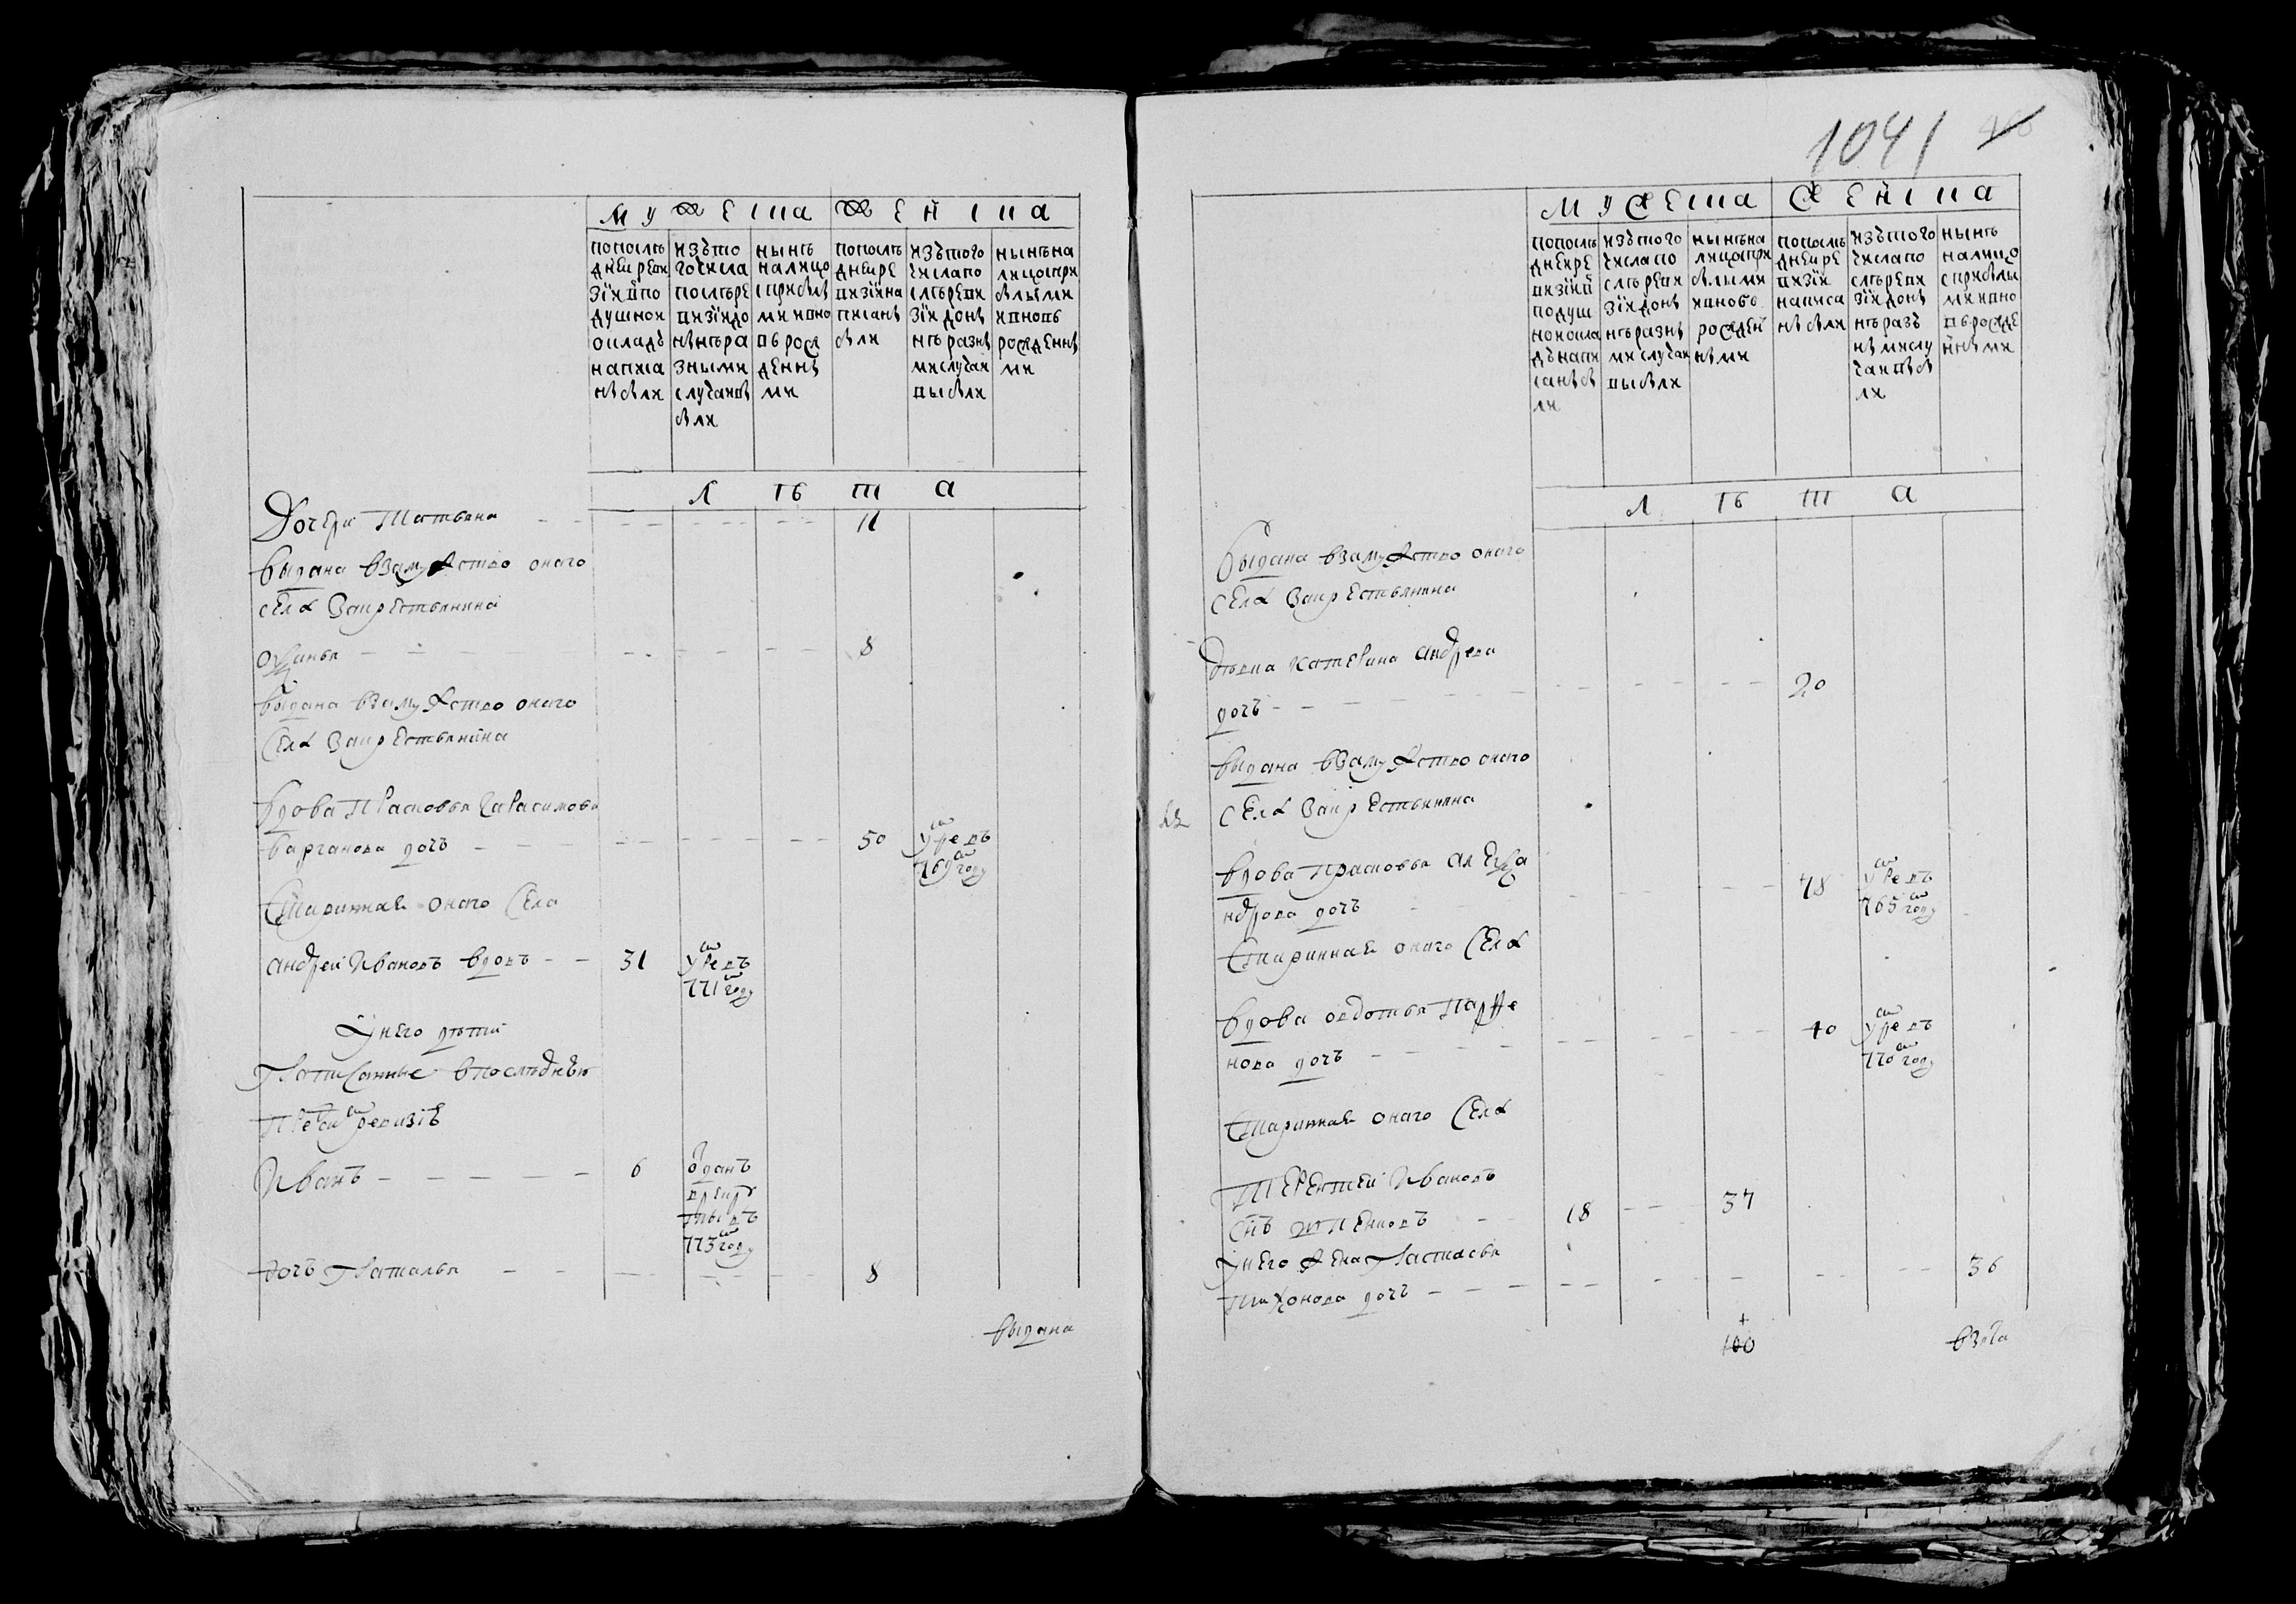 мужеска женска
пополѣ днеи реви зїи в по душнои окладъ написа ны были
изъ то го числа послѣ ре визїи до нынѣ ра зными случаи вы были
нынѣ на лицо с прибы ми и вно въ рож денны ми
пополѣ днеи ре визїи на писаны были
изъ того числа по слѣ реви зїи доны нѣ разны ми случаи выбыли
нынѣ на лицо с при былыми и вновь рожденны ми
лѣта
Дочери Татьяна 11
выдана взамужство оного
села закрестьянина
8
выдана взамужство оного
села закрестьянина
вдова Прасковья Гарасимова
дочь 50 умре въ
769м году
старинная оного села
андреи Ивановъ вдовъ 31 умре въ
771м году
у него дети
написанные в последнею
пред сим ревизїю
Иванъ 6 отданъ
в рекру
ты въ
773м году
дочь Наталья 8
выдана
1041
мужеска женска
пополѣ днеи ре визїи в подуш нои окла дъ напи саны бы ли
изъ того числа по слѣ реви зїи доны нѣ разны ми случаи выбыли
нынѣ на лицо при былыми и вновь рожден ными
пополѣ днеи ре визїи написа ны были
изъ того числа по слѣ реви зїи доны нѣ раз ны ми слу чаи вы бы ли
нынѣ на лицо с прибылы ми и вно въ рожде нны ми
лѣта
выдана взамужство оного
села закрестьянина
девка Катерина андреева
дочь 20
выдана взамужство оного
села закрестьянина
вдова Прасковья алекса
ндрова дочь 78 умре въ
765м году
старинная оного села
вдова овдотья Парфе
нова дочь 40 умре въ
770м году
старинная оного села
Терентеи Ивановъ
снъ 18 37
у него жена Настасья
Тихонова дочь 36
100
взята